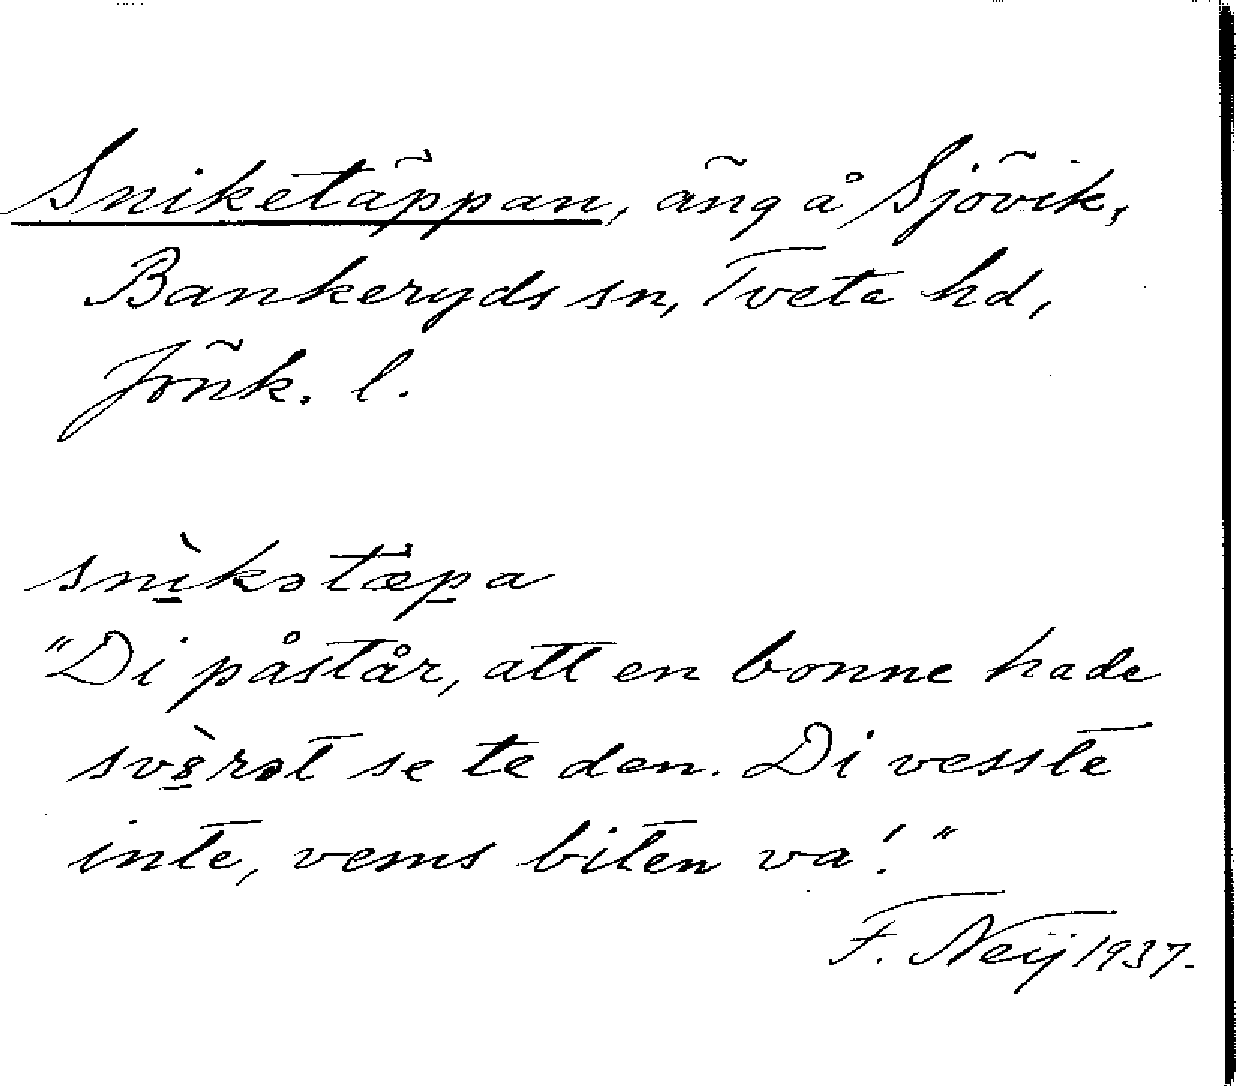 Sniketäppan, äng å Sjövik,
Bankeryds sn, Tveta hd,
Jönk. l.
snìkətæpa
"Di påstår, att en bonne hade
svèrət se te den. Di vesste
inte, vems biten va!"
F. Neij 1937.